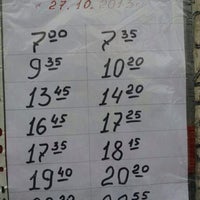 27.10.2013
7 00 7 35
9 35 10 20
13 45 14 20
16 45 17 25
17 35 18 15
19 40 20 20
55